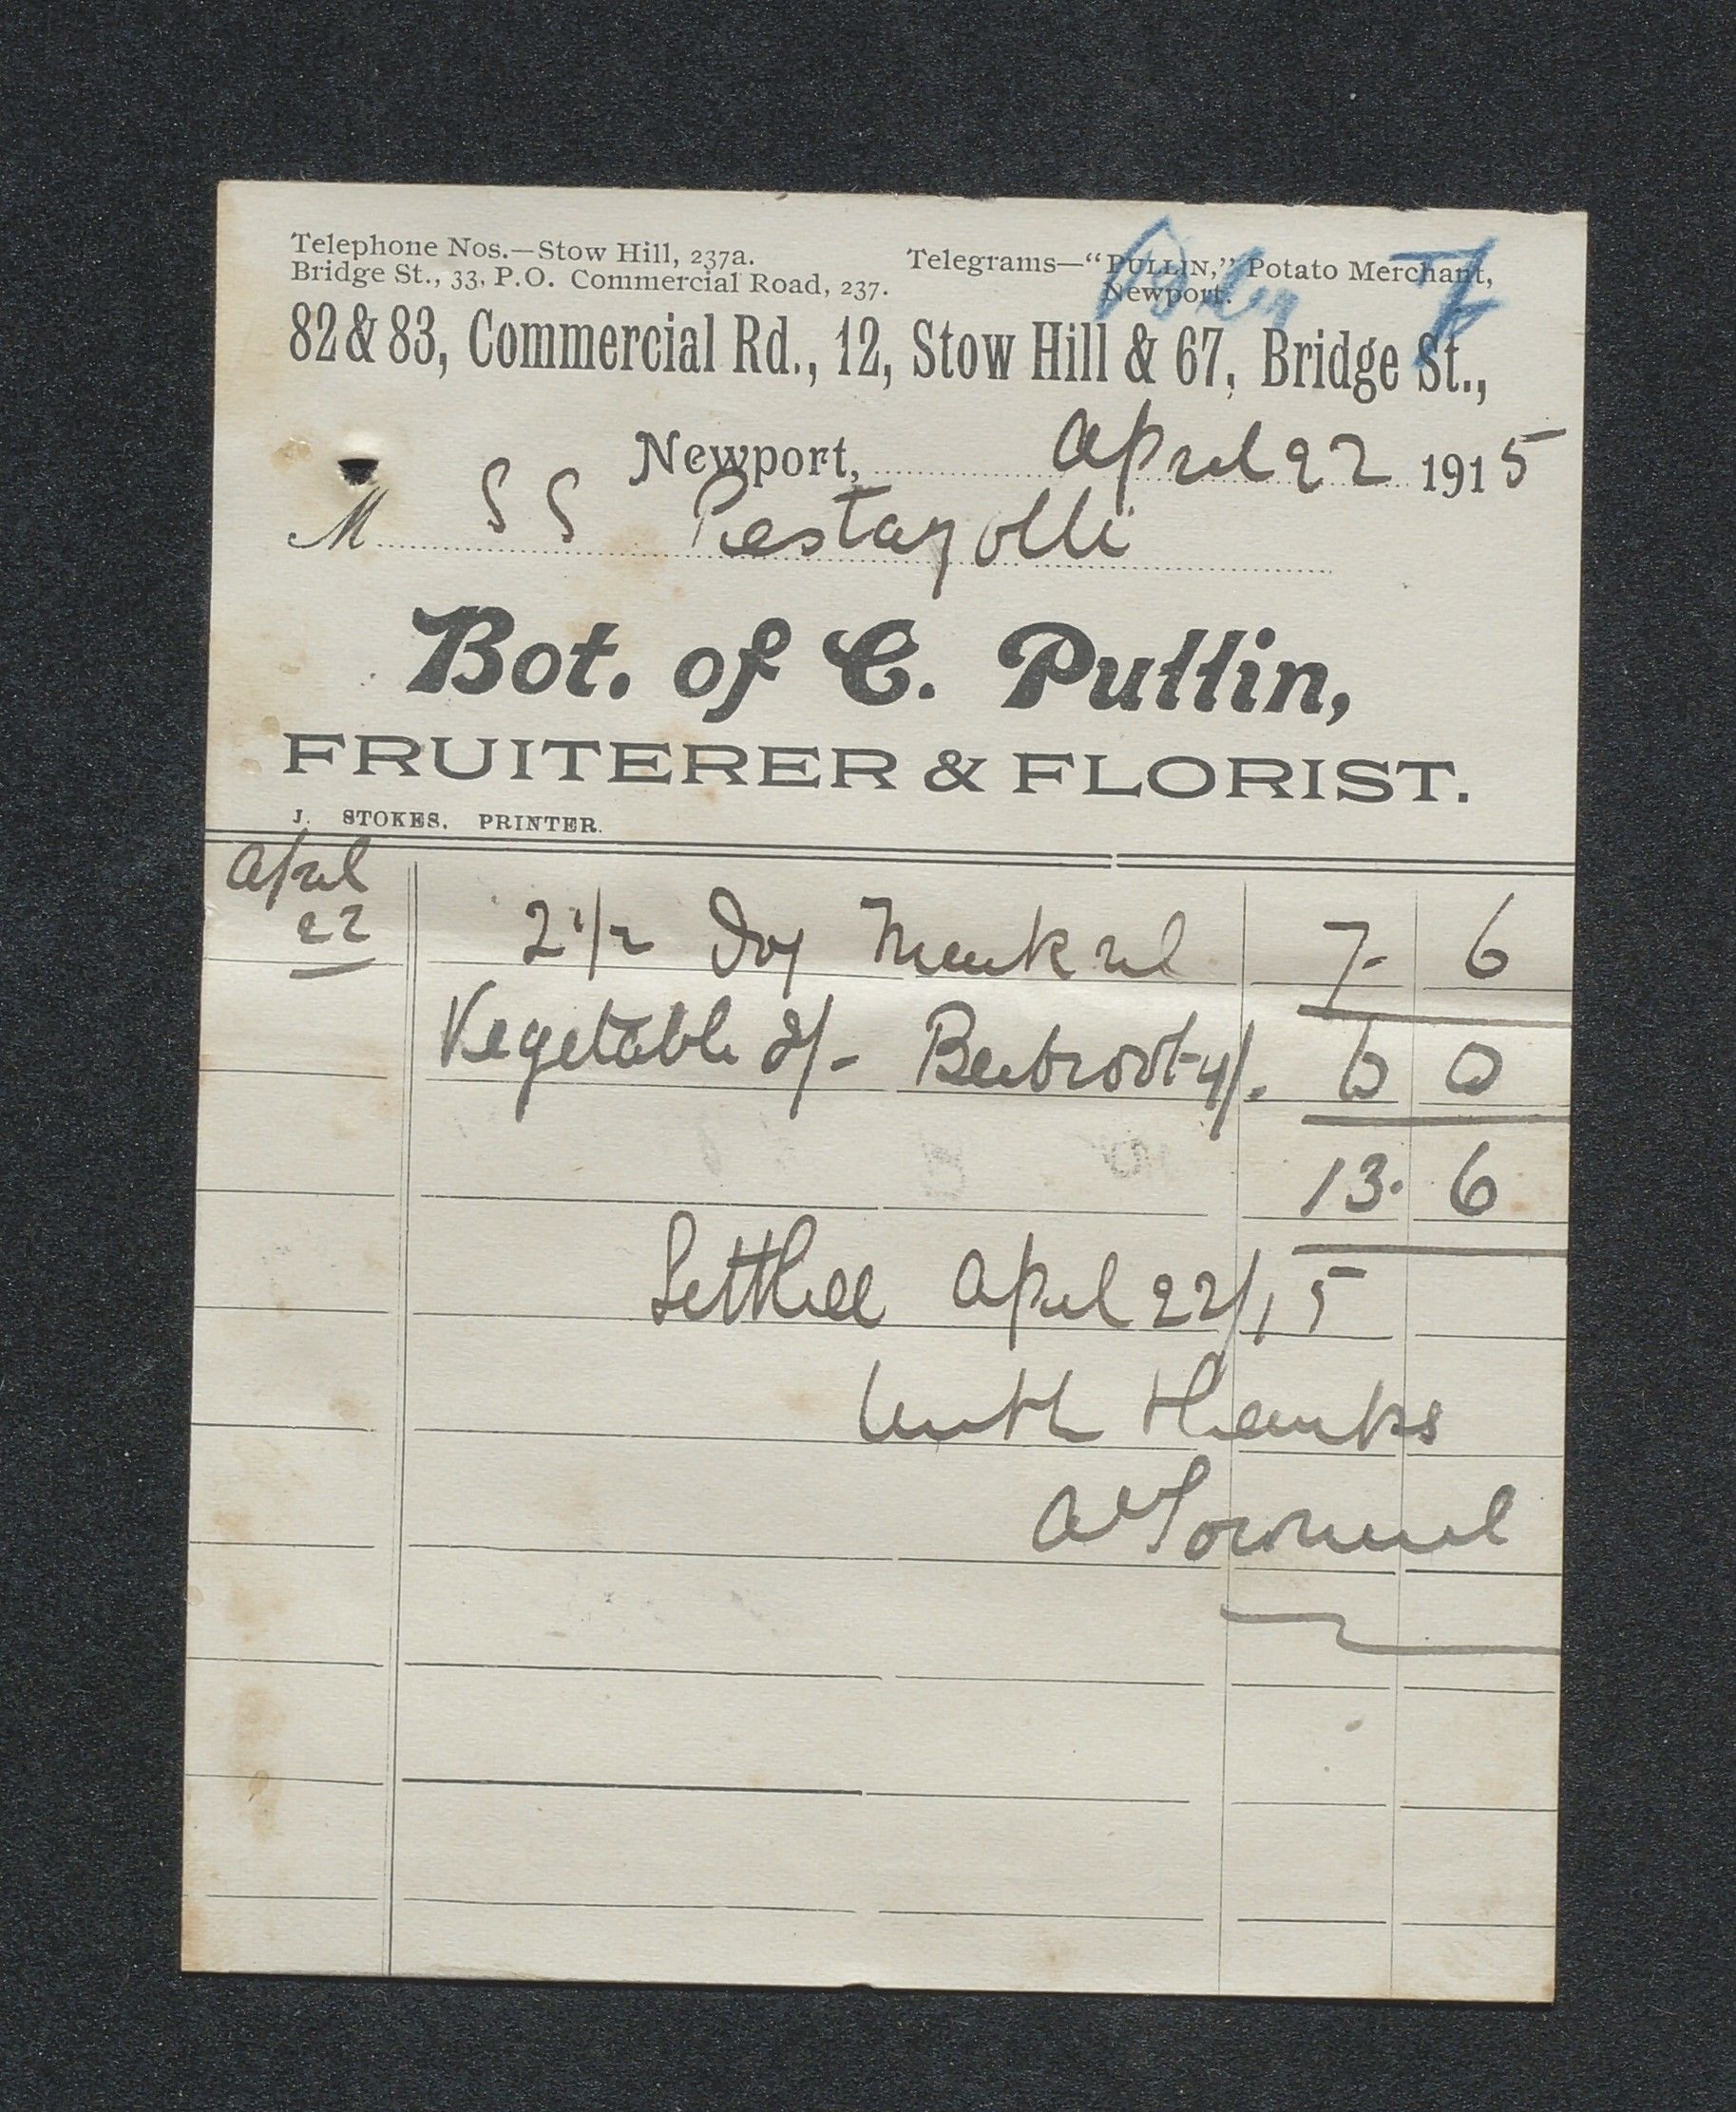 Telephone Nos.—Stow Hill, 237a.
Bridge St., 33, P.O. Commercial Road, 237.
Telegrams—"PULLIN," Potato Merchant,
Newport.
82 & 83, Commercial Rd., 12, Stow Hill & 67, Bridge St.,
Newport, April 22 1915
M SS Pestazolli
Bot. of C. Pullin,
FRUITERER & FLORIST.
J. STOKES, PRINTER.
April
22 2 1/2 Doz 7 - 6
Vegetable 2/- Beetroot 4/- 6 0
13 . 6
Settled April 22/15
With thanks